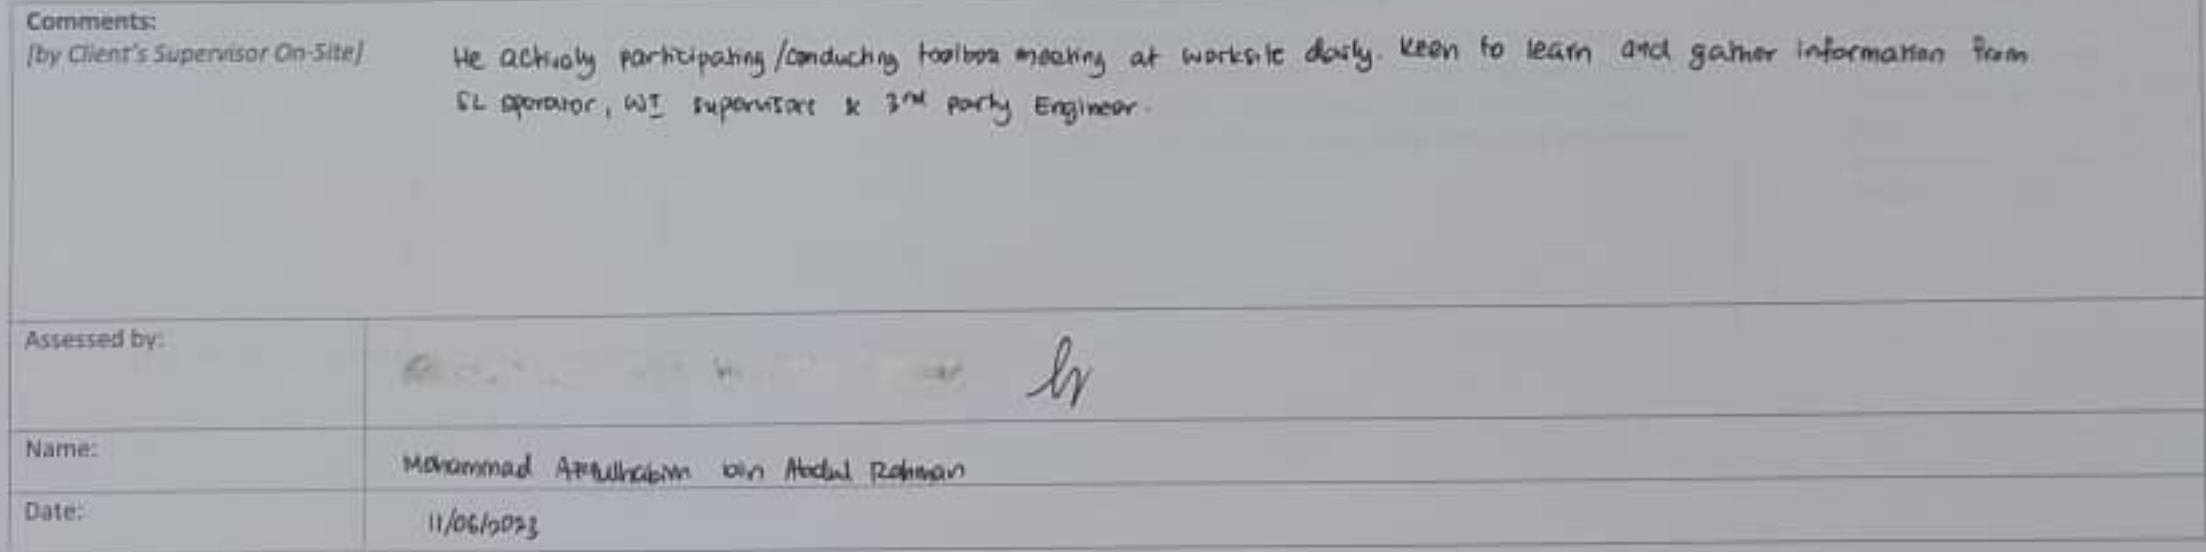 Comments:
[by Client's Supervisor On-Site]
He activly participating/conducting toolbox meeting at worksite daily. Keen to learn and gather information from
SL operator, WI supervisors & 3rd party Engineer.
Assessed by:
Name:
Mohammad bin Abdul Rahman
Date:
11/06/2023